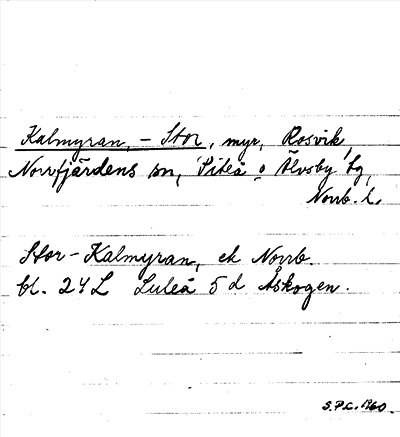 Kalmyran, - Stor, myr, Rosvik,
Norrfjärdens sn, Piteå o Älvsby tg,
Norrb. l.
Stor-Kalmyran, ek Norrb.
bl. 24L Luleå 5d Åskogen.
S.P.C. 1960.